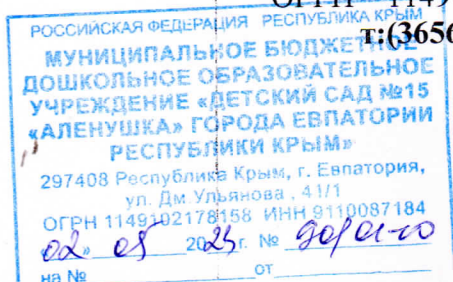 ОГРН 1149
т:(3656
РОССИЙСКАЯ ФЕДЕРАЦИЯ РЕСПУБЛИКА КРЫМ
МУНИЦИПАЛЬНОЕ БЮДЖЕТНОЕ
ДОШКОЛЬНОЕ ОБРАЗОВАТЕЛЬНОЕ
УЧРЕЖДЕНИЕ «ДЕТСКИЙ САД №15
«АЛЕНУШКА» ГОРОДА ЕВПАТОРИИ
РЕСПУБЛИКИ КРЫМ»
297408 Республика Крым, г. Евпатория,
ул. Дм Ульянова , 41/1
ОГРН 1149102178158 ИНН 9110087184
02 05 г. №
на № от